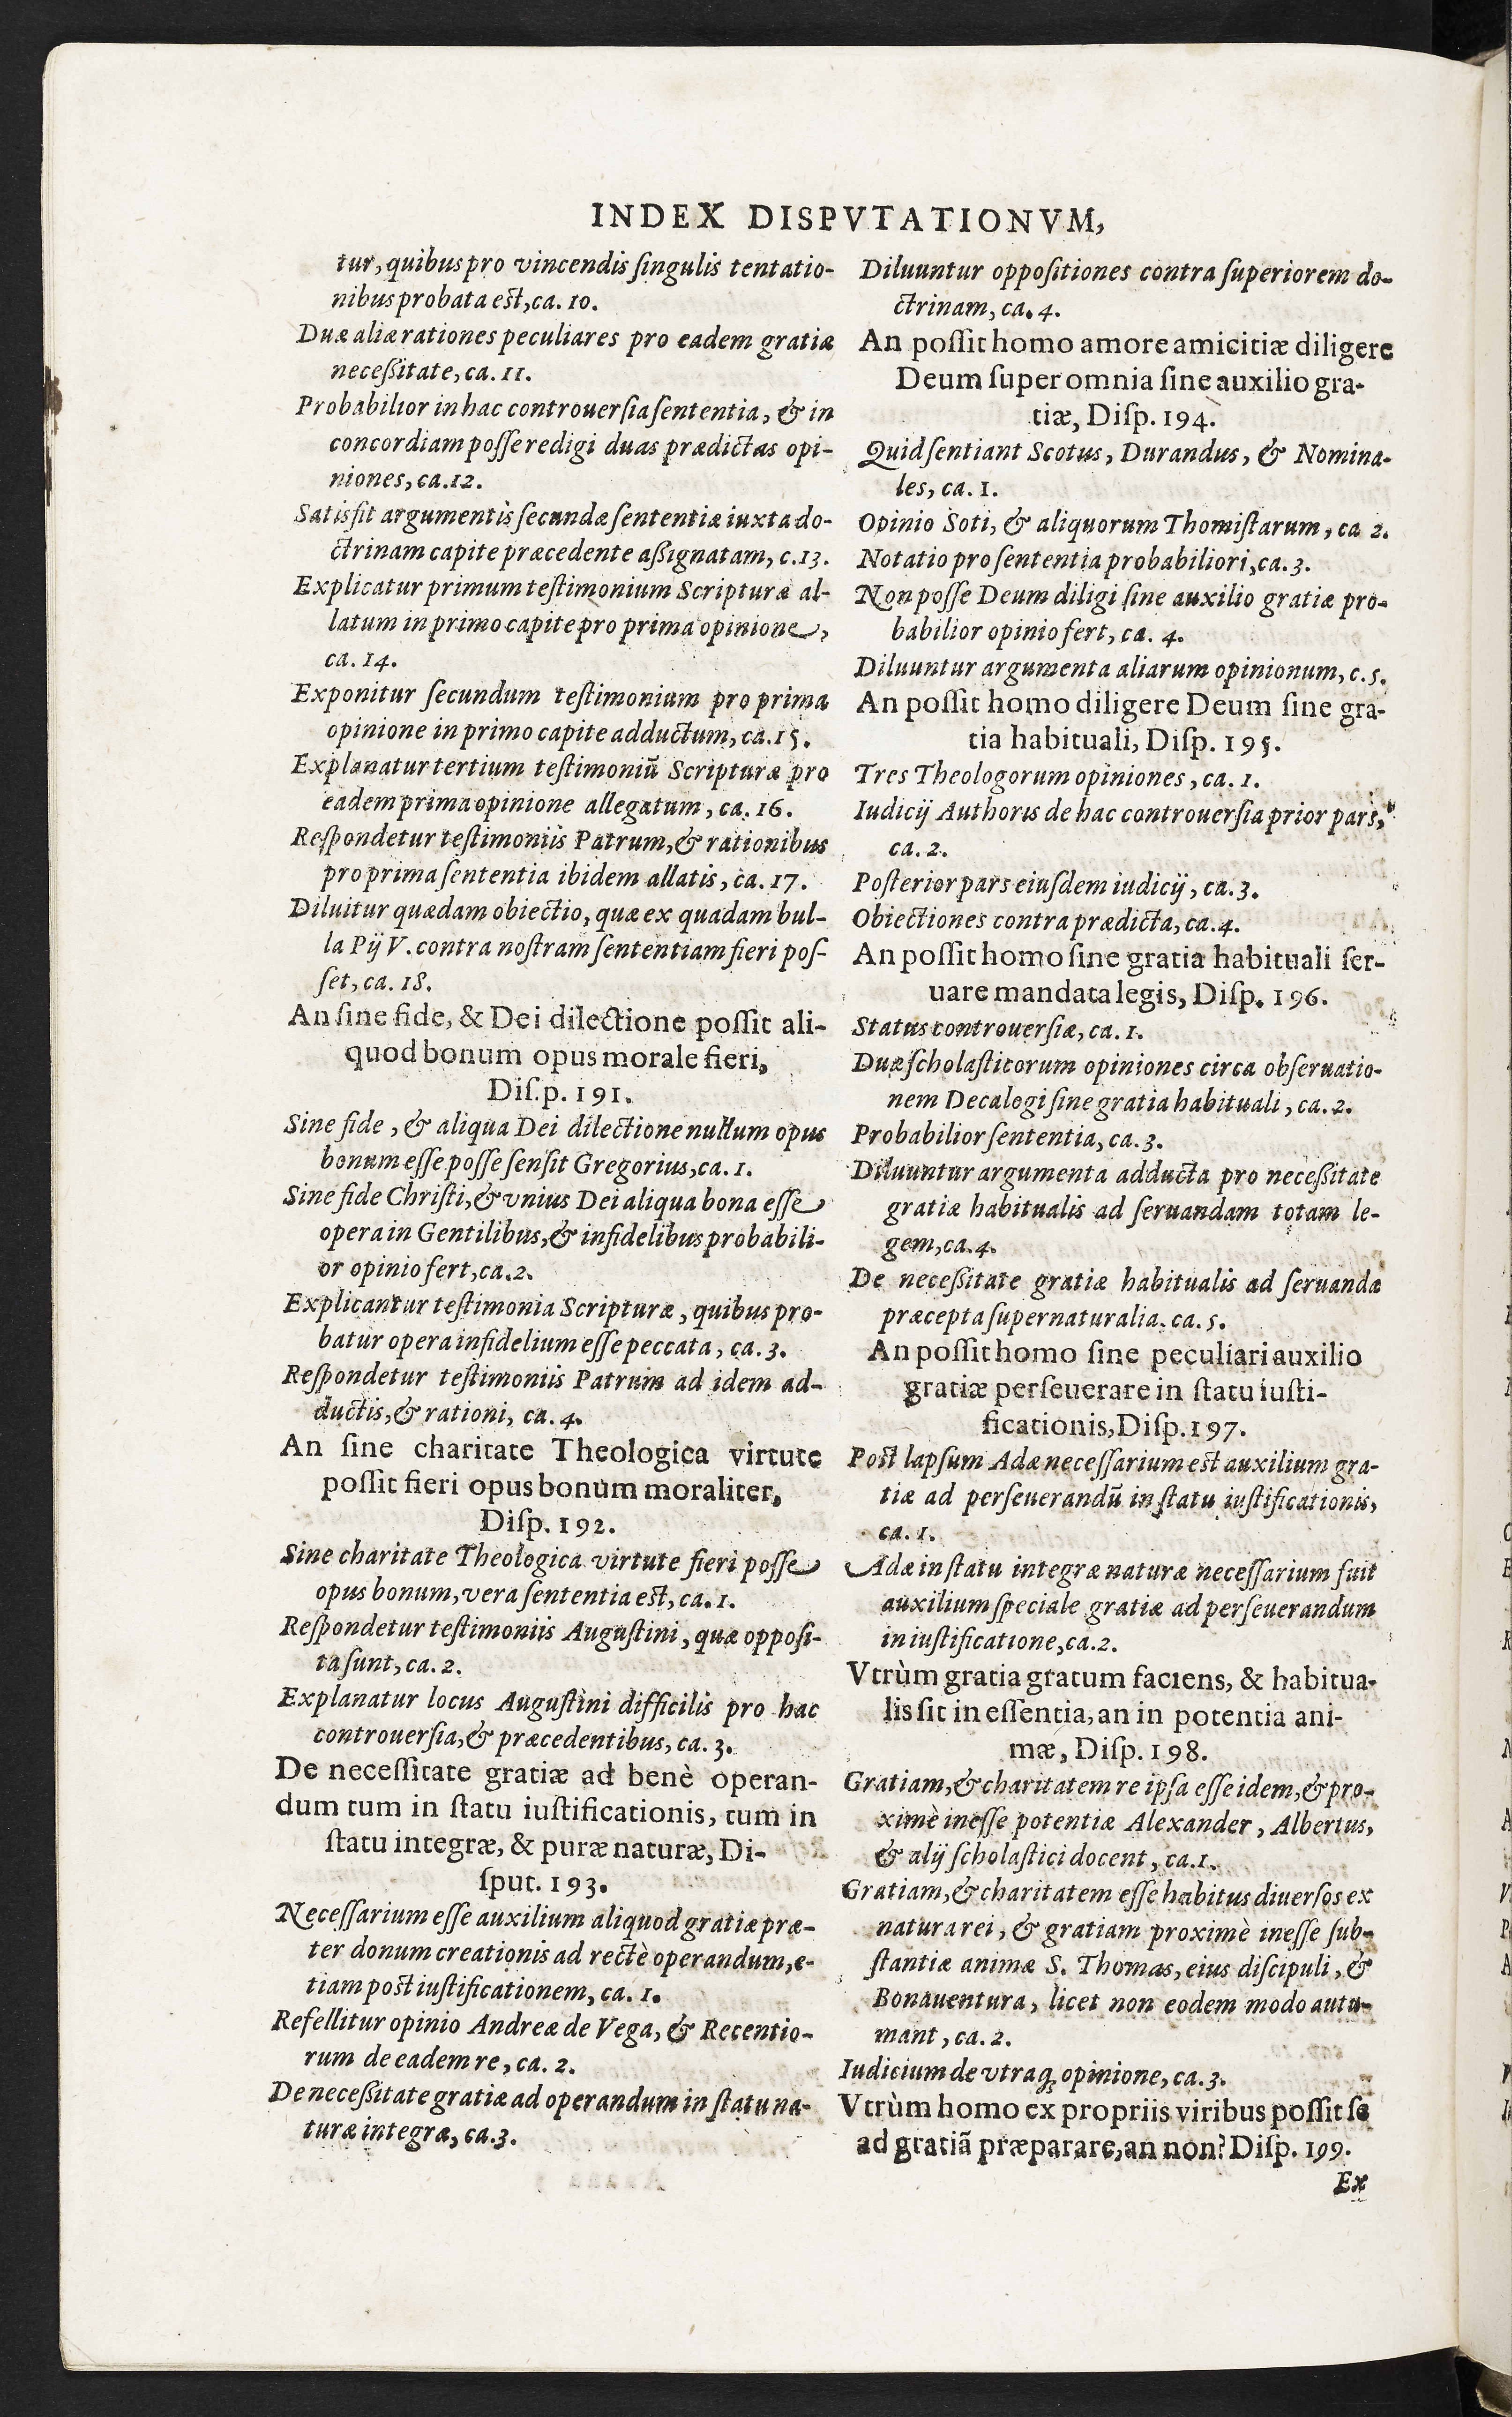 INDEX DISPVTATIONVM,
tur, quibus pro vincendis ſingulis tentatio-
nibus probata eſt, ca. 10.
Duæ aliæ rationes peculiares pro eadem gratiæ
neceßitate, ca. 11.
Probabilior in hac controuerſia ſententia, & in
concordiam poſſe redigi duas prædictas opi-
niones, ca. 12.
Satisfit argumentis ſecundæ ſententiæ iuxta do-
ctrinam capite præcedente aßignatam, c. 13.
Explicatur primum teſtimonium Scripturæ al-
latum in primo capite pro prima opinione,
ca. 14.
Exponitur ſecundum teſtimonium pro prima
opinione in primo capite adductum, ca. 15.
Explanatur tertium teſtimoniũ Scripturæ pro
eadem prima opinione allegatum, ca. 16.
Reſpondetur teſtimoniis Patrum, & rationibus
pro prima ſententia ibidem allatis, ca. 17.
Diluitur quædam obiectio, quæ ex quadam bul-
la Pij V. contra noſtram ſententiam fieri poſ-
ſet, ca. 18.
An ſine fide, & Dei dilectione poſſit ali-
quod bonum opus morale fieri,
Diſ.p. 191.
Sine fide, & aliqua Dei dilectione nullum opus
bonum eſſe poſſe ſenſit Gregorius, ca. 1.
Sine fide Chriſti, & vnius Dei aliqua bona eſſe
opera in Gentilibus, & infidelibus probabili-
or opinio fert, ca. 2.
Explicantur teſtimonia Scripturæ, quibus pro-
batur opera infidelium eſſe peccata, ca. 3.
Reſpondetur teſtimoniis Patrum ad idem ad-
ductis, & rationi, ca. 4.
An ſine charitate Theologica virtute
poſſit fieri opus bonum moraliter,
Diſp. 192.
Sine charitate Theologica virtute fieri poſſe
opus bonum, vera ſententia eſt, ca. 1.
Reſpondetur teſtimoniis Auguſtini, quæ oppoſi-
ta ſunt, ca. 2.
Explanatur locus Auguſtini difficilis pro hac
controuerſia, & præcedentibus, ca. 3.
De neceſſitate gratiæ ad benè operan-
dum tum in ſtatu iuſtificationis, tum in
ſtatu integræ, & puræ naturæ, Di-
ſput. 193.
Neceſſarium eſſe auxilium aliquod gratiæ præ-
ter donum creationis ad rectè operandum, e-
tiam poſt iuſtificationem, ca. 1.
Refellitur opinio Andreæ de Vega, & Recentio-
rum de eadem re, ca. 2.
De neceßitate gratiæ ad operandum in ſtatu na-
turæ integræ, ca. 3.
Diluuntur oppoſitiones contra ſuperiorem do-
ctrinam, ca. 4.
An poſſit homo amore amicitiæ diligere
Deum ſuper omnia ſine auxilio gra-
tiæ, Diſp. 194.
Quid ſentiant Scotus, Durandus, & Nomina-
les, ca. 1.
Opinio Soti, & aliquorum Thomiſtarum, ca 2.
Notatio pro ſententia probabiliori, ca. 3.
Non poſſe Deum diligi ſine auxilio gratiæ pro-
babilior opinio fert, ca. 4.
Diluuntur argumenta aliarum opinionum, c. 5.
An poſſit homo diligere Deum ſine gra-
tia habituali, Diſp. 195.
Tres Theologorum opiniones, ca. 1.
Iudicij Authoris de hac controuerſia prior pars,
ca. 2.
Poſterior pars eiuſdem iudicij, ca. 3.
Obiectiones contra prædicta, ca. 4.
An poſſit homo ſine gratia habituali ſer-
uare mandata legis, Diſp. 196.
Status controuerſiæ, ca. 1.
Duæ ſcholaſticorum opiniones circa obſeruatio-
nem Decalogi ſine gratia habituali, ca. 2.
Probabilior ſententia, ca. 3.
Diluuntur argumenta adducta pro neceßitate
gratiæ habitualis ad ſeruandam totam le-
gem, ca. 4.
De neceßitate gratiæ habitualis ad ſeruanda
præcepta ſupernaturalia. ca. 5.
An poſſit homo ſine peculiari auxilio
gratiæ perſeuerare in ſtatu iuſti-
ficationis, Diſp. 197.
Poſt lapſum Adæ neceſſarium eſt auxilium gra-
tiæ ad perſeuerandũ in ſtatu iuſtificationis,
ca. 1.
Adæ in ſtatu integræ naturæ neceſſarium fuit
auxilium ſpeciale gratiæ ad perſeuerandum
in iuſtificatione, ca. 2.
Vtrùm gratia gratum faciens, & habitua-
lis ſit in eſſentia, an in potentia ani-
mæ, Diſp. 198.
Gratiam, & charitatem re ipſa eſſe idem, & pro-
ximè ineſſe potentiæ Alexander, Albertus,
& alij ſcholaſtici docent, ca. 1.
Gratiam, & charitatem eſſe habitus diuerſos ex
natura rei, & gratiam proximè ineſſe ſub-
ſtantiæ animæ S. Thomas, eius diſcipuli, &
Bonauentura, licet non eodem modo autu-
mant, ca. 2.
Iudicium de vtraq; opinione, ca. 3.
Vtrùm homo ex propriis viribus poſſit ſe
ad gratiã præparare, an non? Diſp. 199.
Ex